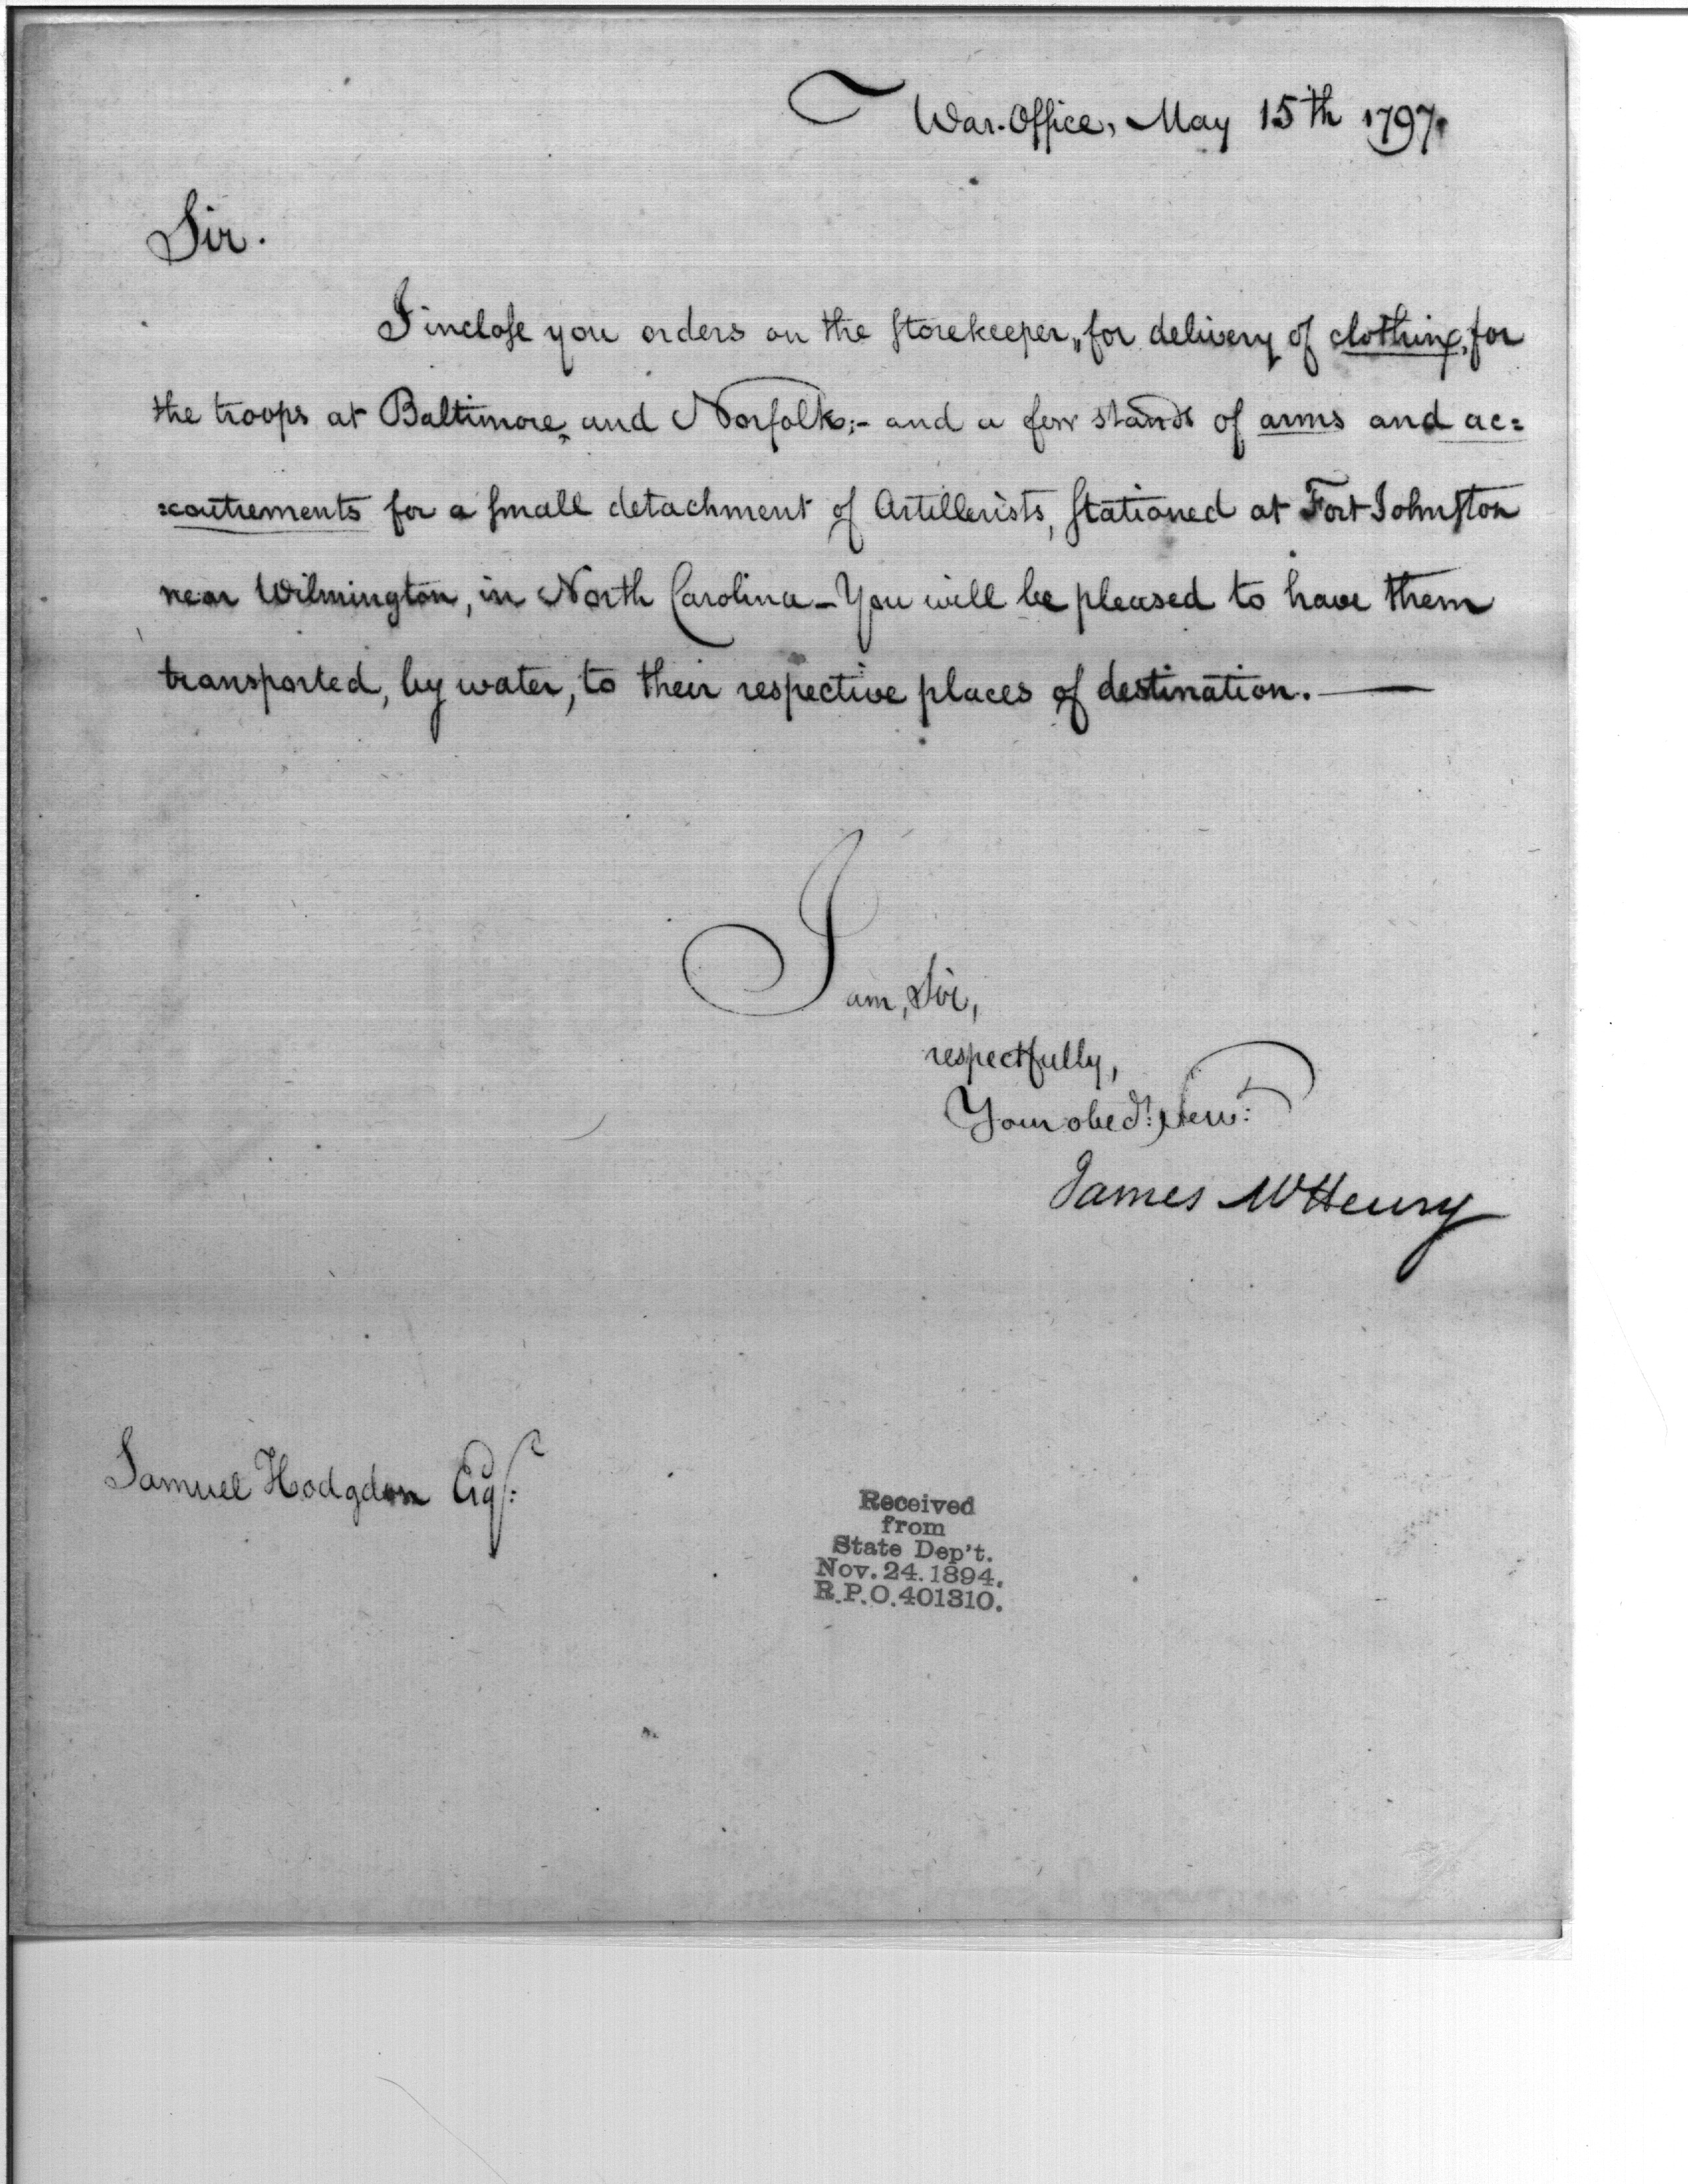 War-Office, May 15th 1797.
Sir.
I inclose you orders on the storekeeper, for delivery of clothing, for
the troops at Baltimore, and Norfolk;- and a few stands of arms and ac=
=coutrements for a small detachment of Artillerists, stationed at Fort Johnston
near Wilmington, in North Carolina - You will be pleased to have them
transported, by water, to their respective places of destination. —
I am, Sir,
respectfully,
Your obedt: Servt:
James McHenry
Samuel Hodgdon Esqr:
Received
from
State Dep't.
Nov. 24. 1894.
R.P.O. 401310.